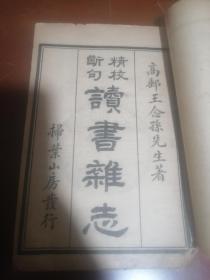 高郵王念孫先生著
精校
斷句
讀書雜志
掃葉山房發行